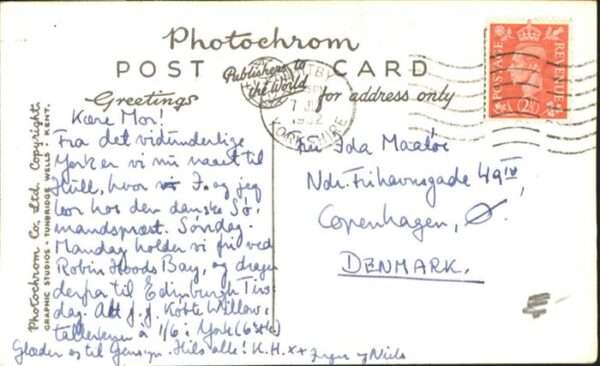 Photochrom
POST CARD
Publishers to
the World
Greetings
for address only
Photochrom Co. Ltd. Copyright.
GRAPHIC STUDIOS • TUNBRIDGE WELLS • KENT.
WHITBY
1952
YORKSHIRE
POSTAGE
REVENUE
2½D
Kære Mor!
Fra det vidunderlige
York er vi nu naaet til
Hull, hvor J. og jeg
bor hos den danske Sø-
mandspræst. Søndag-
Mandag holder vi fri ved
Robin Hoods Bay, og drager
derfra til Edinburgh Tirs
dag. Alt f. j. Købte Willow-
tallerkener a 1/6 i York
Glæder os til Gensyn. Hils alle! K.H. xx Jørgen og Niels
Fru Ida Maaløe
Ndr. Frihavnsgade 49 IV,
Copenhagen, Ø.
DENMARK.